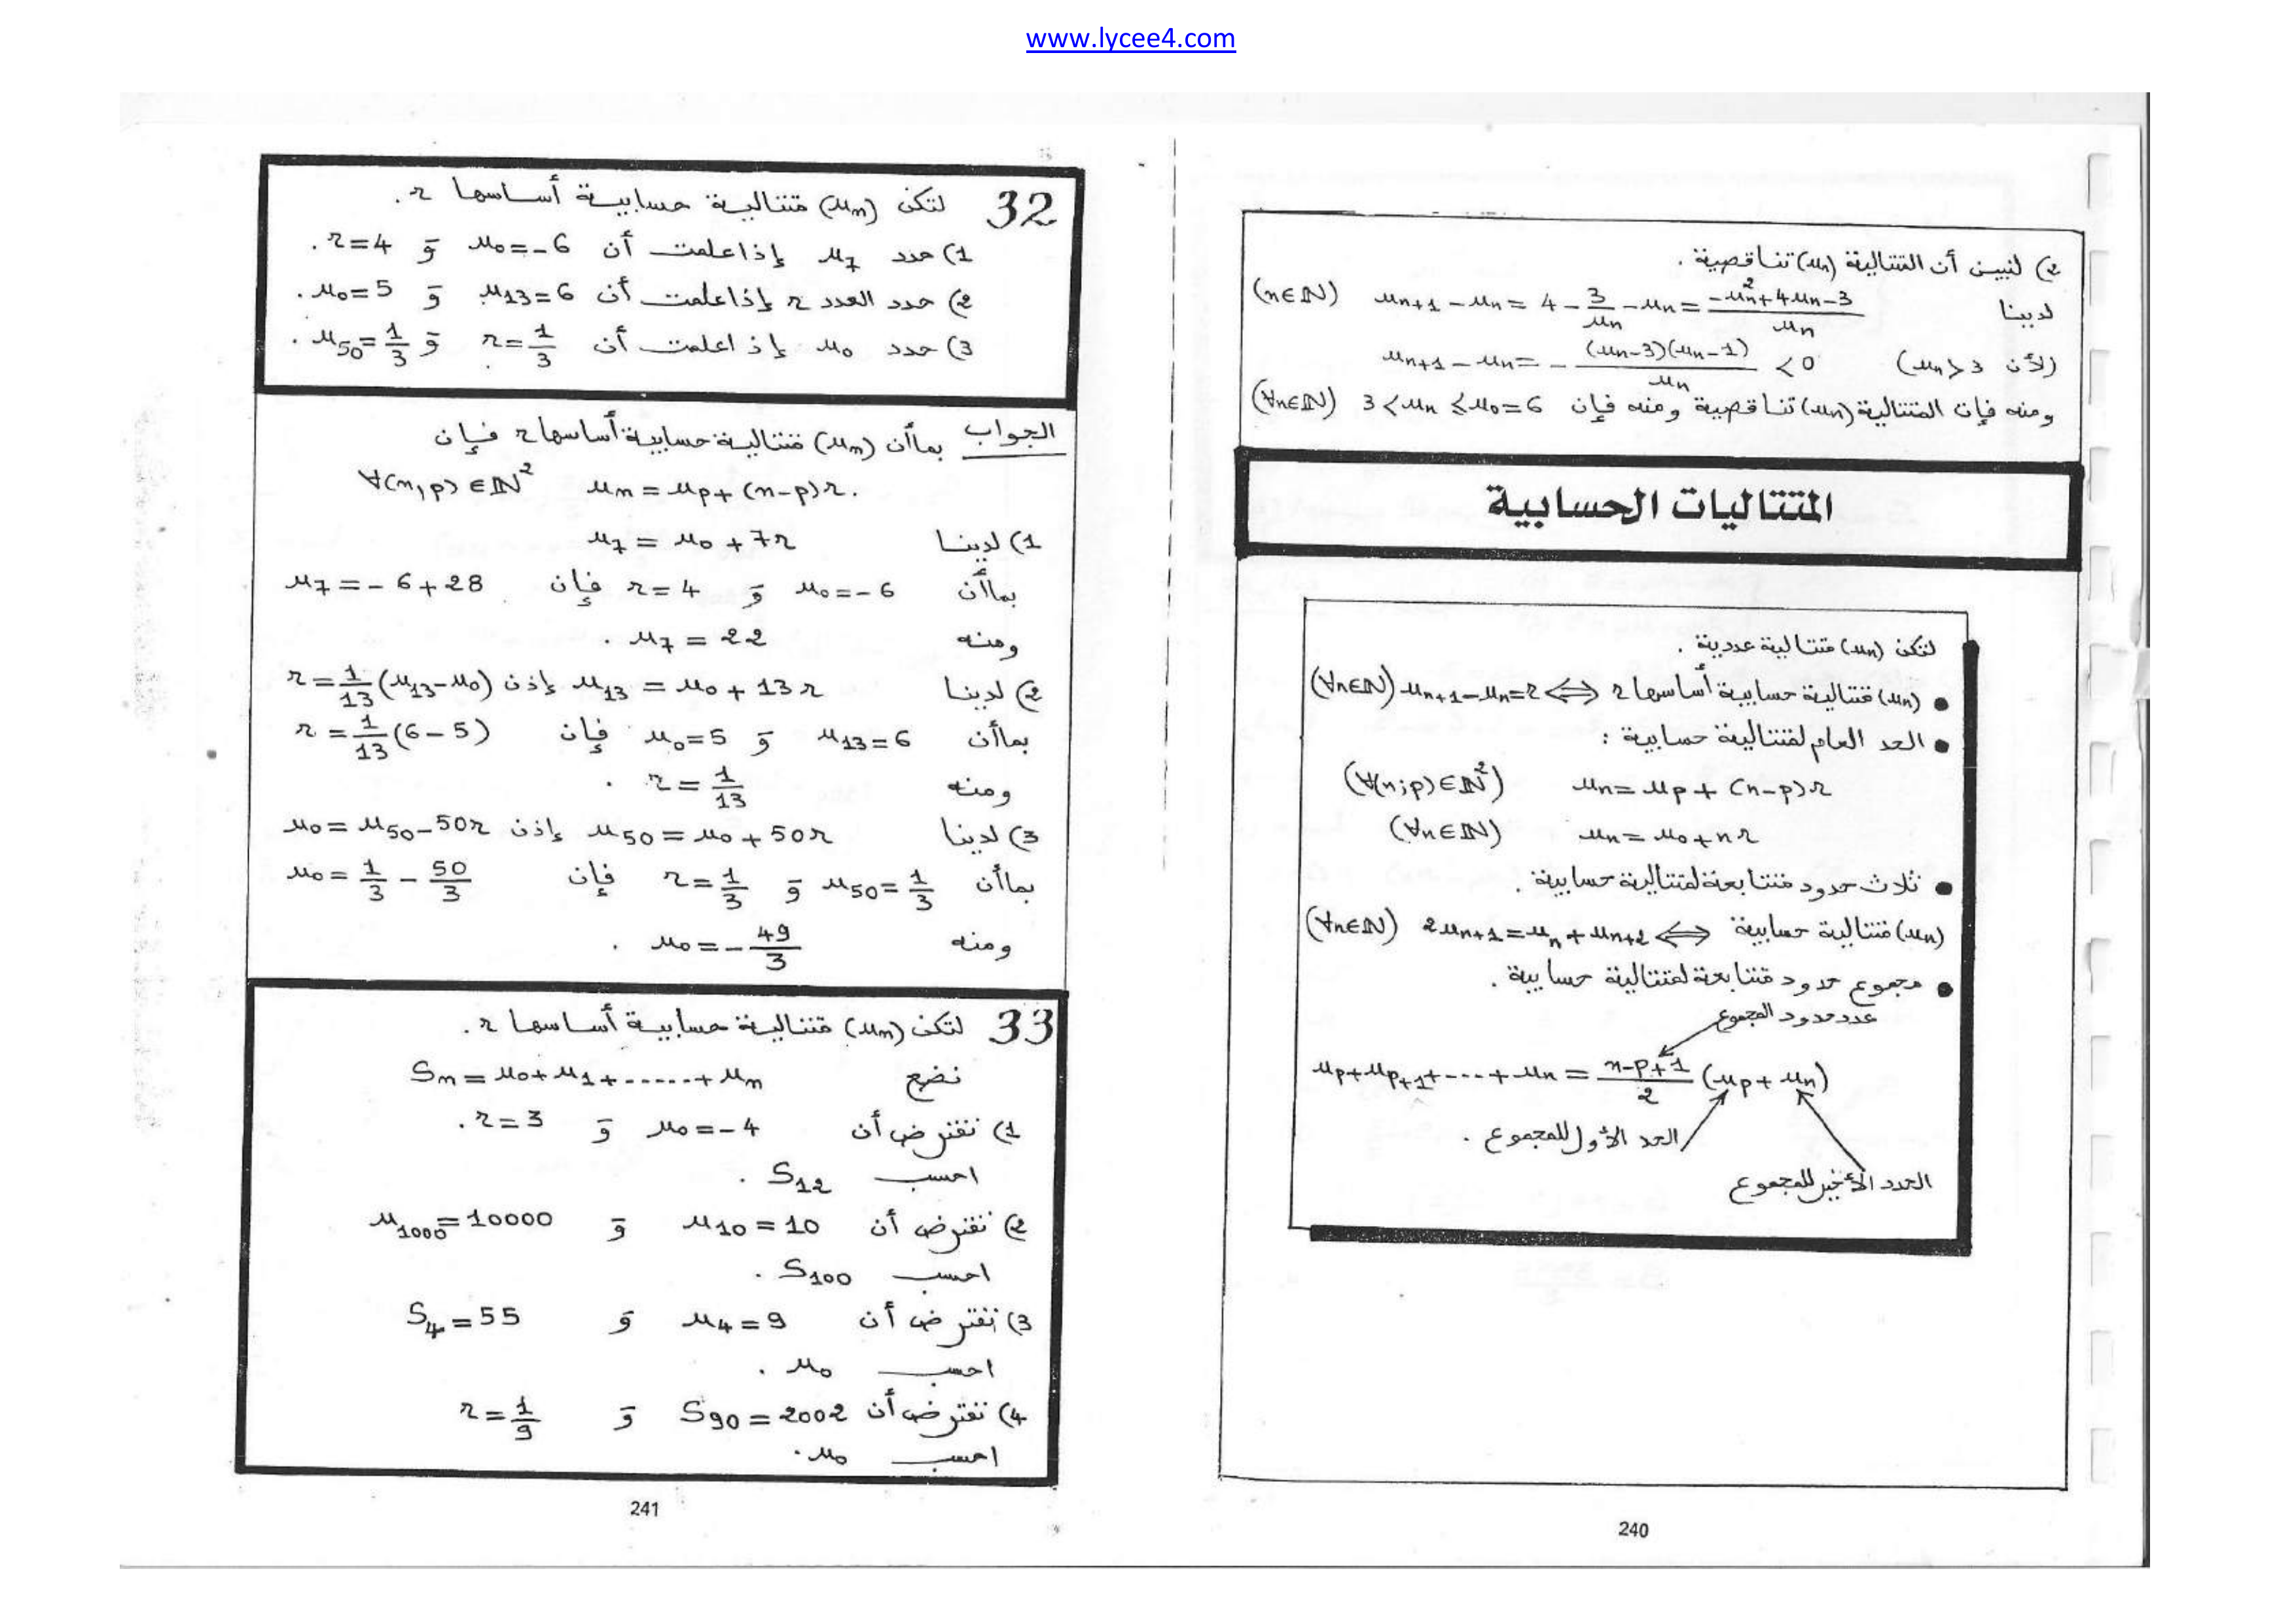 www.lycee4.com
2) لنبين أن المتتالية (un) تناقصية .
لدينا un+1 - un = 4 - 3/un - un = (-un²+4un-3)/un (n∈ℕ)
(لأن un>3) un+1 - un = - (un-3)(un-1)/un < 0
ومنه فإن المتتالية (un) تناقصية ومنه فإن 3 < un ≤ u0 = 6 (∀n∈ℕ)
المتتاليات الحسابية
لتكن (un) متتالية عددية .
• (un) متتالية حسابية أساسها r ⟺ un+1 - un = r (∀n∈ℕ)
• الحد العام لمتتالية حسابية :
un = up + (n-p)r (∀(n;p)∈ℕ²)
un = u0 + nr (∀n∈ℕ)
• ثلاث حدود متتابعة لمتتالية حسابية .
(un) متتالية حسابية ⟺ 2un+1 = un + un+2 (∀n∈ℕ)
• مجموع حدود متتابعة لمتتالية حسابية .
عدد حدود المجموع
up + up+1 + --- + un = (n-p+1)/2 (up + un)
الحد الأول للمجموع .
الحدد الأخير للمجموع
240
32 لتكن (un) متتالية حسابية أساسها r .
1) حدد u7 إذا علمت أن u0 = -6 و r = 4 .
2) حدد العدد r إذا علمت أن u13 = 6 و u0 = 5 .
3) حدد u0 إذا علمت أن r = 1/3 و u50 = 1/3 .
الجواب بما أن (un) متتالية حسابية أساسها r فإن
∀(n,p) ∈ ℕ² un = up + (n-p)r .
1) لدينا u7 = u0 + 7r
بما أن u0 = -6 و r = 4 فإن u7 = -6 + 28
ومنه u7 = 22 .
2) لدينا u13 = u0 + 13r إذن r = 1/13 (u13 - u0)
بما أن u13 = 6 و u0 = 5 فإن r = 1/13 (6 - 5)
ومنه r = 1/13 .
3) لدينا u50 = u0 + 50r إذن u0 = u50 - 50r
بما أن u50 = 1/3 و r = 1/3 فإن u0 = 1/3 - 50/3
ومنه u0 = - 49/3 .
33 لتكن (un) متتالية حسابية أساسها r .
نضع Sn = u0 + u1 + ...... + un
1) نفترض أن u0 = -4 و r = 3 .
احسب S12 .
2) نفترض أن u10 = 10 و u1000 = 10000
احسب S100 .
3) نفترض أن u4 = 9 و S4 = 55
احسب u0 .
4) نفترض أن S90 = 2002 و r = 1/9
احسب u0 .
241